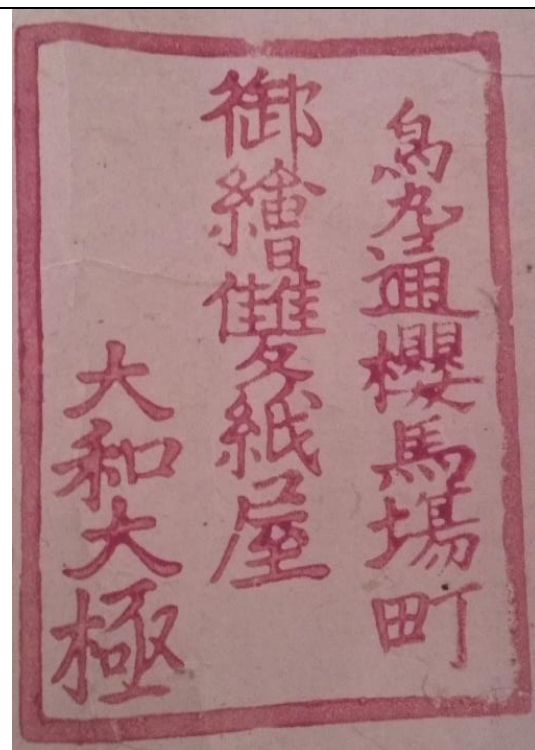 烏丸通櫻馬場町
御繪雙紙屋
大和大極